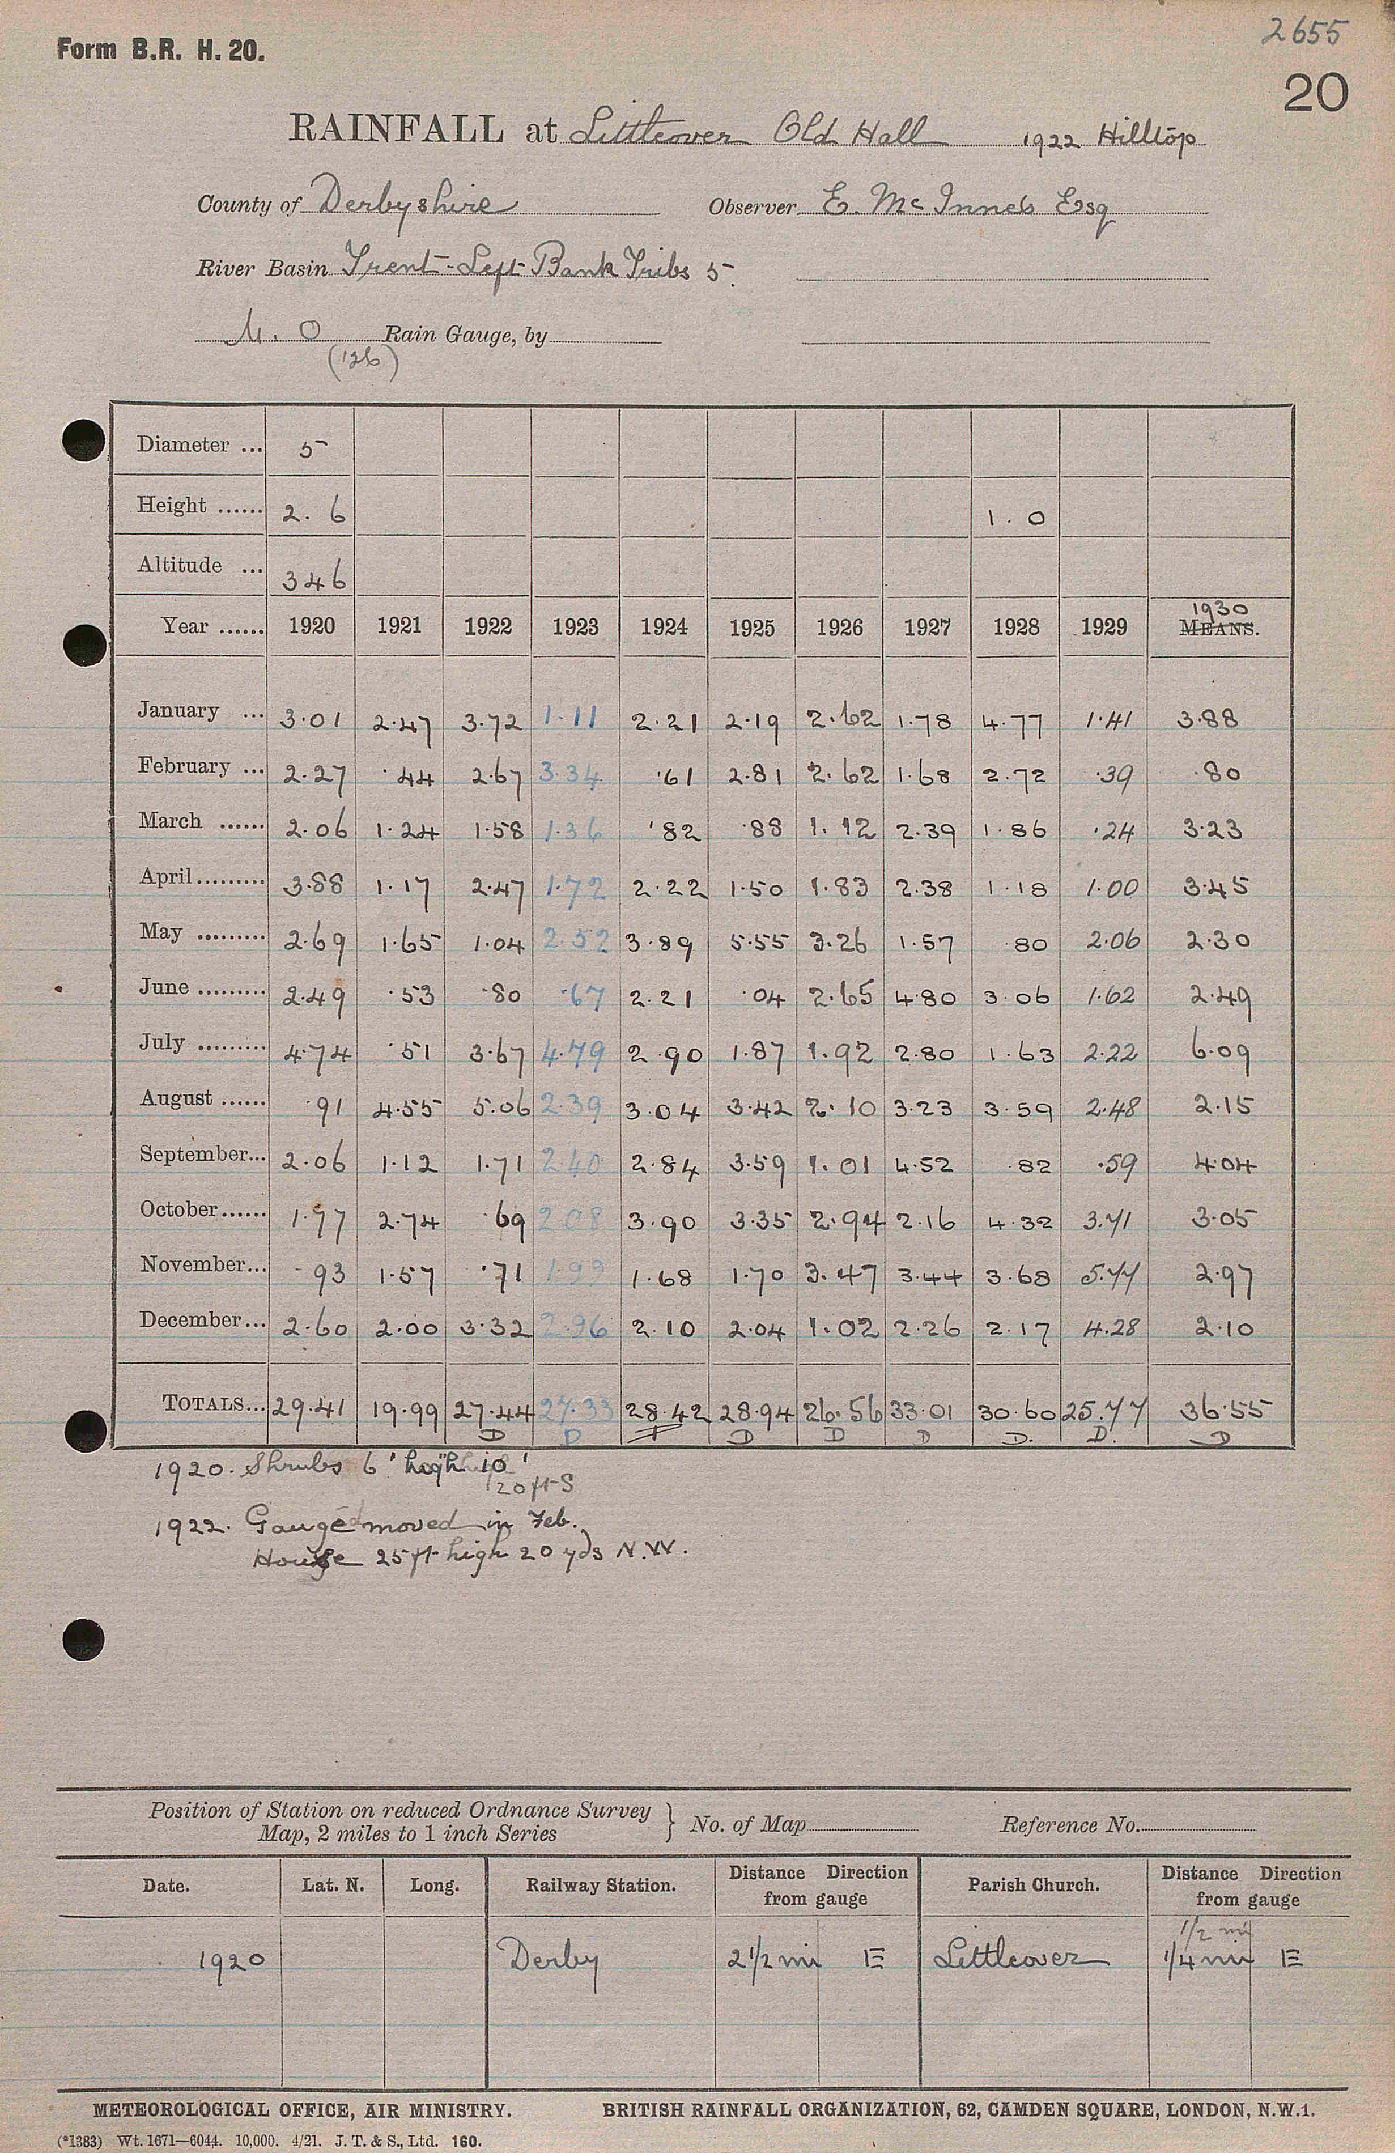 2655
Form B.R. H. 20.
20
RAINFALL at Littleover Old Hall 1922 Hilltop
County of Derbyshire Observer E. Mc Innes Esq
River Basin Trent - Left Bank Tribs 5
M. O Rain Gauge, by
(126)
Diameter ... 5
Height ...... 2. 6 1. 0
Altitude ... 346
1930
Year ...... 1920 1921 1922 1923 1924 1925 1926 1927 1928 1929 MEANS.
January ... 3.01 2.47 3.72 1.11 2.21 2.19 2.62 1.78 4.77 1.41 3.88
February ... 2.27 .44 2.67 3.34 .61 2.81 2.62 1.68 2.72 .39 .80
March ...... 2.06 1.24 1.58 1.36 .82 .88 1.12 2.39 1.86 .24 3.23
April......... 3.88 1.17 2.47 1.72 2.22 1.50 1.83 2.38 1.18 1.00 3.45
May ......... 2.69 1.65 1.04 2.52 3.89 5.55 3.26 1.57 .80 2.06 2.30
June ......... 2.49 .53 .80 .67 2.21 .04 2.65 4.80 3.06 1.62 2.49
July ......... 4.74 .51 3.67 4.79 2.90 1.87 1.92 2.80 1.63 2.22 6.09
August ...... .91 4.55 5.06 2.39 3.04 3.42 2.10 3.23 3.59 2.48 2.15
September... 2.06 1.12 1.71 2.40 2.84 3.59 1.01 4.52 .82 .59 4.04
October...... 1.77 2.74 .69 2.08 3.90 3.35 2.94 2.16 4.32 3.71 3.05
November... .93 1.57 .71 1.99 1.68 1.70 3.47 3.44 3.68 5.77 2.97
December... 2.60 2.00 3.32 2.96 2.10 2.04 1.02 2.26 2.17 4.28 2.10
TOTALS... 29.41 19.99 27.44 27.33 28.42 28.94 26.56 33.01 30.60 25.77 36.55
D D D D D D. D. D
1920. Shrubs 6' high 10'
20 ft S
1922. Gauge moved in Feb.
House 25 ft high 20 yds N.W.
Position of Station on reduced Ordnance Survey
Map, 2 miles to 1 inch Series } No. of Map Reference No.
Date. Lat. N. Long. Railway Station. Distance Direction from gauge Parish Church. Distance Direction from gauge
1/2 mi
1920 Derby 2 1/2 mi E Littleover 1/4 mi E
METEOROLOGICAL OFFICE, AIR MINISTRY. BRITISH RAINFALL ORGANIZATION, 62, CAMDEN SQUARE, LONDON, N.W.1.
(*1383) Wt. 1671—6044. 10,000. 4/21. J. T. & S., Ltd. 160.